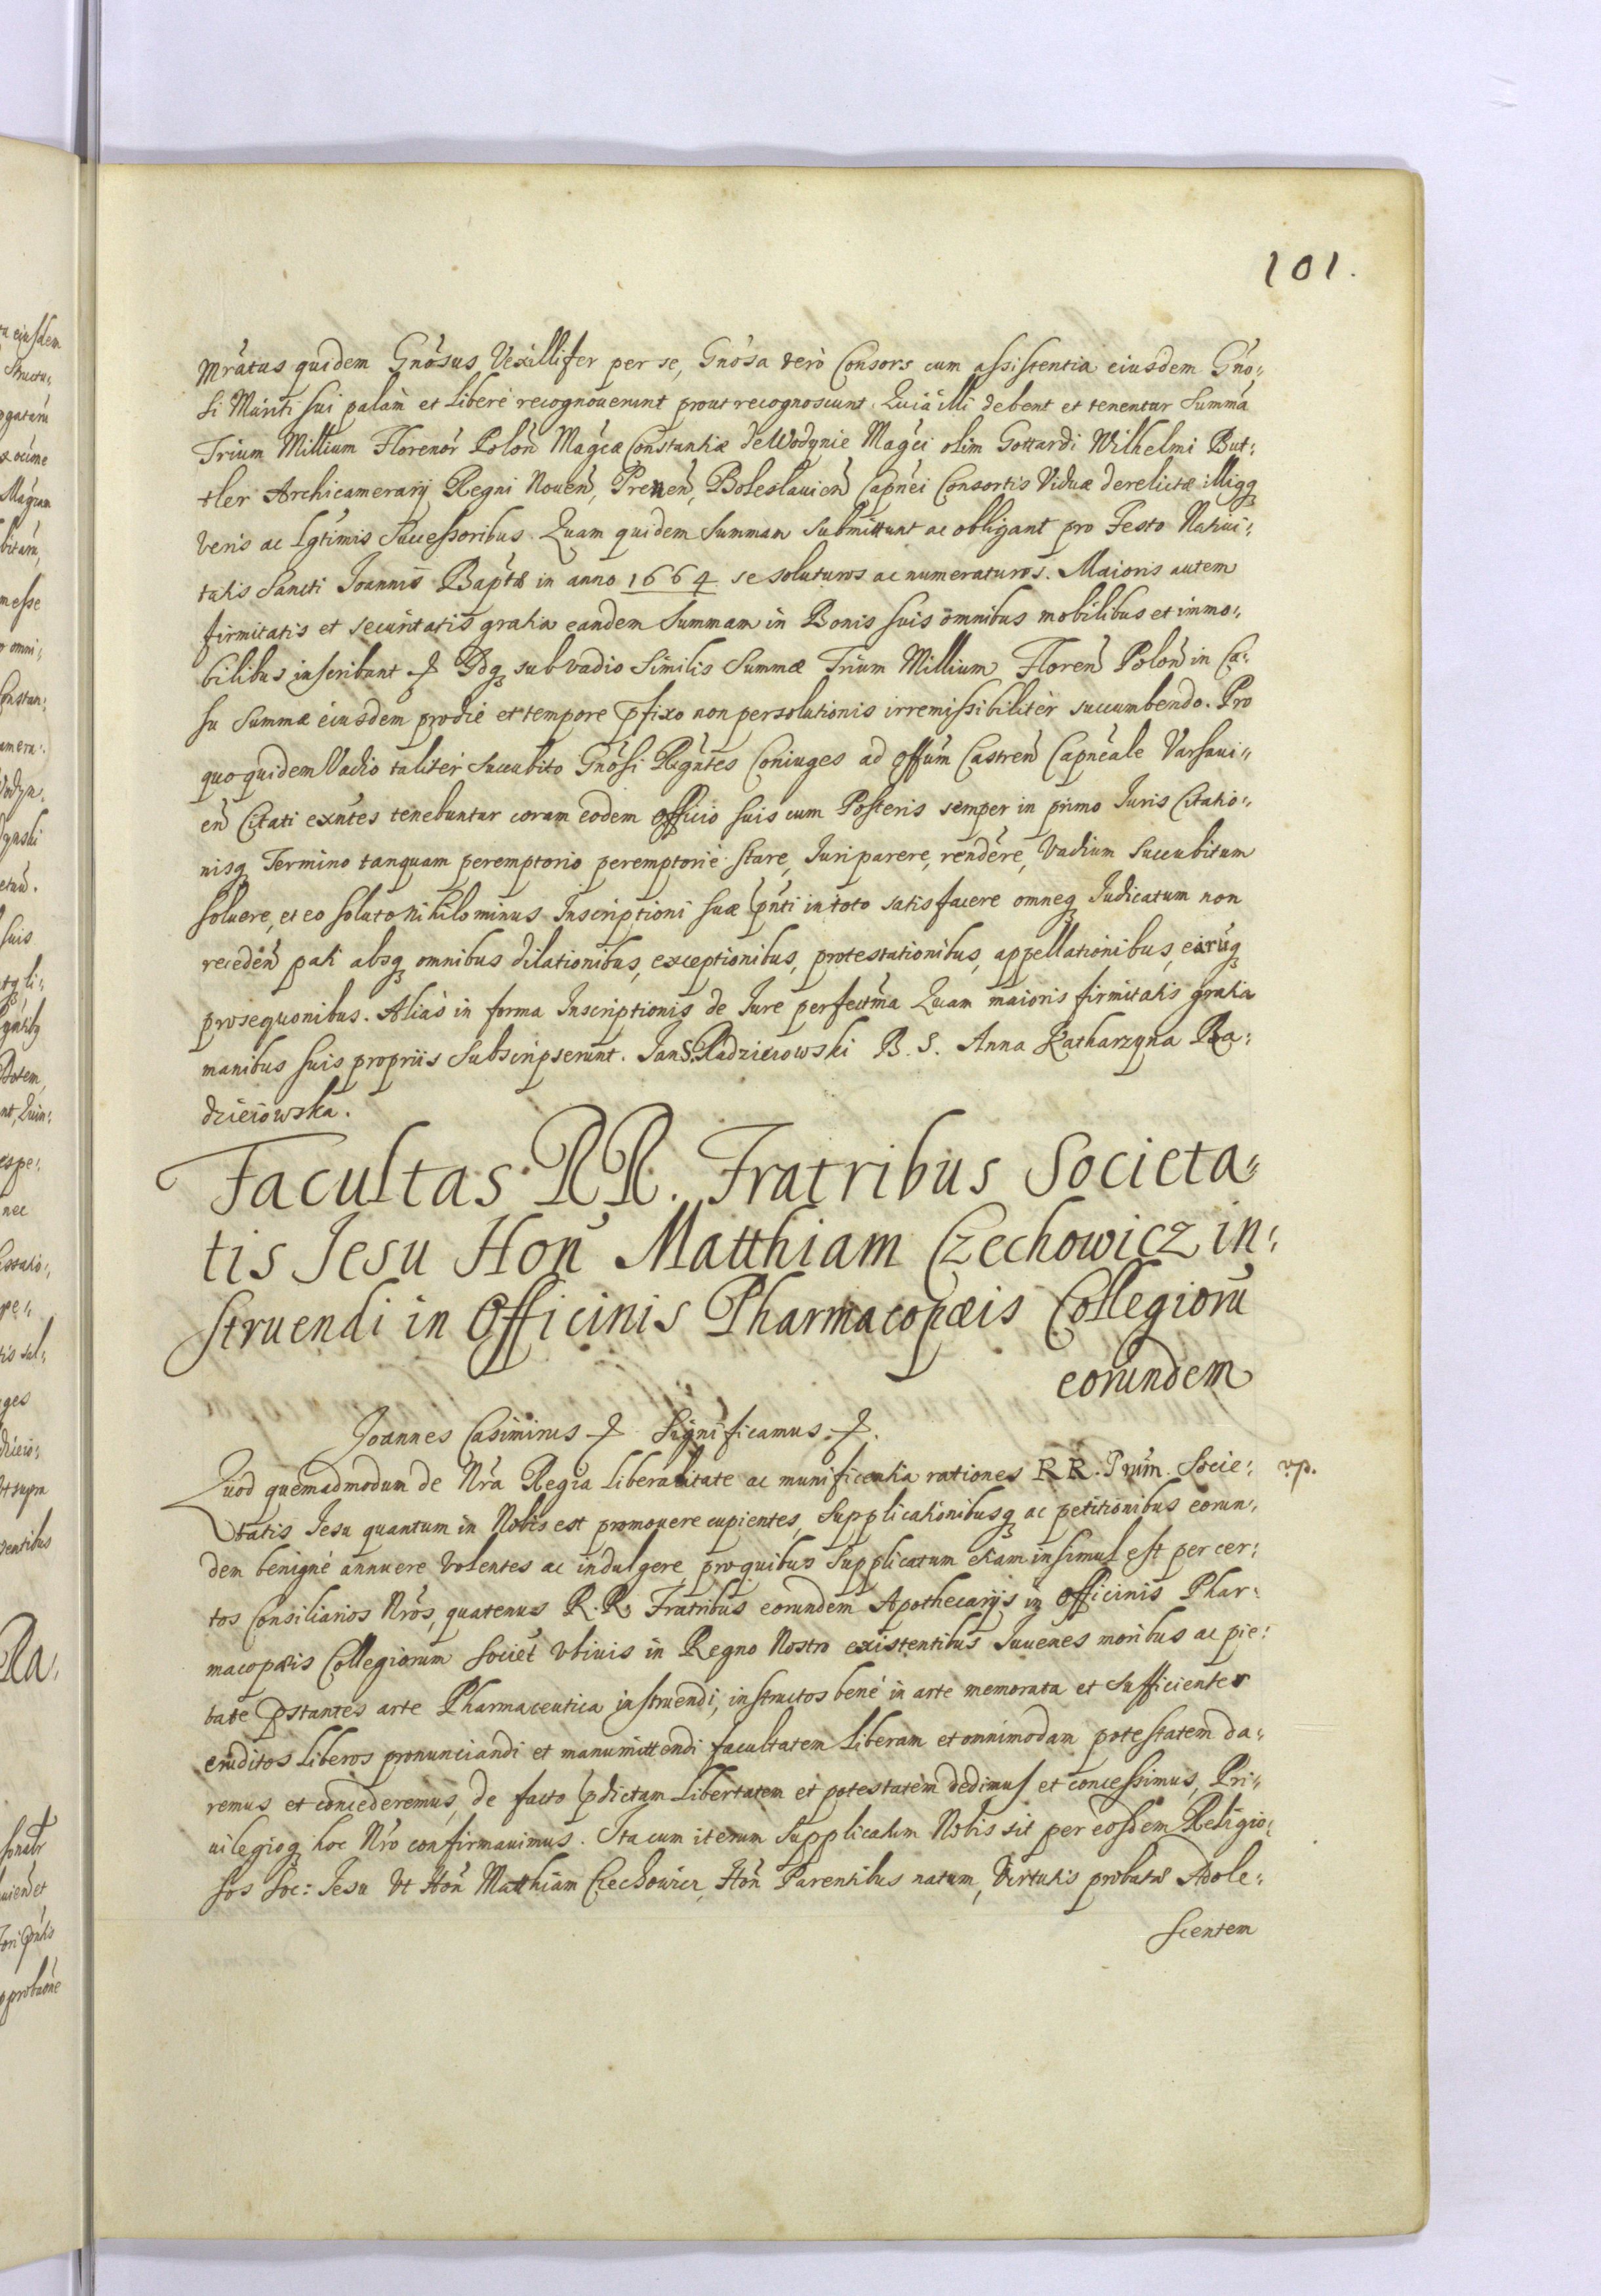 101.
Mratus quidem Gnosus Vexillifer per se, Gnosa verò Consors cum assistentia eiusdem Gno:
si Mariti sui palam et liberè recognouerunt prout recognoscunt. Quia illi debent et tenentur Summa
Trium Millium Florenor Polon Magcæ Constantiæ de Wodynie Magci olim Gottardi Wilhelmi But:
tler Archicamerarij Regni Nouen, Prenen, Boleslauien Capnei Consortis Viduæ derelictæ illiqq
veris ac Lgtimis Successoribus. Quam quidem Summam submittunt ac obligant pro Festo Natiui:
tatis Sancti Joannis Baptæ in anno 1664 se soluturos ac numeraturos. Maioris autem
firmitatis et securitatis gratia eandem Summam in Bonis suis omnibus mobilibus et immo:
bilibus inscribunt Idq sub vadio Similis Summæ Trium Millium Floren Polon in Ca:
su Summæ eiusdem prodie et tempore pfixo non persolutionis irremissibiliter succumbendo. Pro
quo quidem Vadio taliter succubito Gnosi Rgntes Coniuges ad Offum Castren Capneale Varsaui:
en Citati exntes tenebuntur coram eodem Officio suis cum Posteris semper in primo Iuris Citatio:
nisq Termino tanquam peremptorio peremptoriè stare, Iuri parere, rendere, Vadium Succubitum
soluere, et eo soluto nihilominus Inscriptioni suæ pnti in toto satisfacere omneq Iudicatum non
receden pati absq omnibus dilationibus, exceptionibus, protestationibus, appellationibus, earuq
prosequonibus. Aliàs in forma Inscriptionis de Iure perfectma Quam maioris firmitatis gratia
manibus suis propriis Subscripserunt. Jan S. Radzieiowski B. S. Anna Katharzyna Ra:
dzieiowska.
Facultas RR. Fratribus Societa:
tis Jesu Hon Matthiam Czechowicz in:
struendi in Officinis Pharmacopæis Collegioru
eorundem
Joannes Casimirus Significamus.
Quod quemadmodum de Nra Regia liberalitate ac munificentia rationes RR. Prum. Socie: vp.
tatis Jesu quantum in Nobis est promouere cupientes, Supplicationibusq ac petitionibus eorun:
dem benignè annuere volentes ac indulgere, pro quibus supplicatum etiam insimul est per cer:
tos Consiliarios Nros, quatenus R. R. Fratribus eorundem Apothecarijs in Officinis Phar:
macopæis Collegiorum Societ vbiuis in Regno Nostro existentibus Iuuenes moribus ac pie:
tate pstantes arte Pharmaceutica instruendi, instructos benè in arte memorata et sufficienter
eruditos liberos pronunciandi et manumittendi facultatem liberam et omnimodam potestatem da:
remus et concederemus, de facto pdictam libertatem et potestatem dedimus et concessimus, Pri:
uilegioq hoc Nro confirmauimus. Ita cum iterum Supplicatum Nobis sit per eosdem Religio:
sos Soc: Jesu Vt Hon Matthiam Czechowicz, Hon Parentibus natum, Virtutis probatæ Adole:
scentem